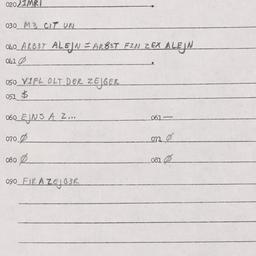 020 IMRI
030 M3 CIT UN
040 ARB3T ALEJN = ARB3T FIN ZEX ALEJN
041 Ø
050 VIFL OLT DER ZEJGER
051 $
060 EJNS A Z... 061 —
070 Ø 071 Ø
080 Ø 081 Ø
090 FIR A ZEJG3R